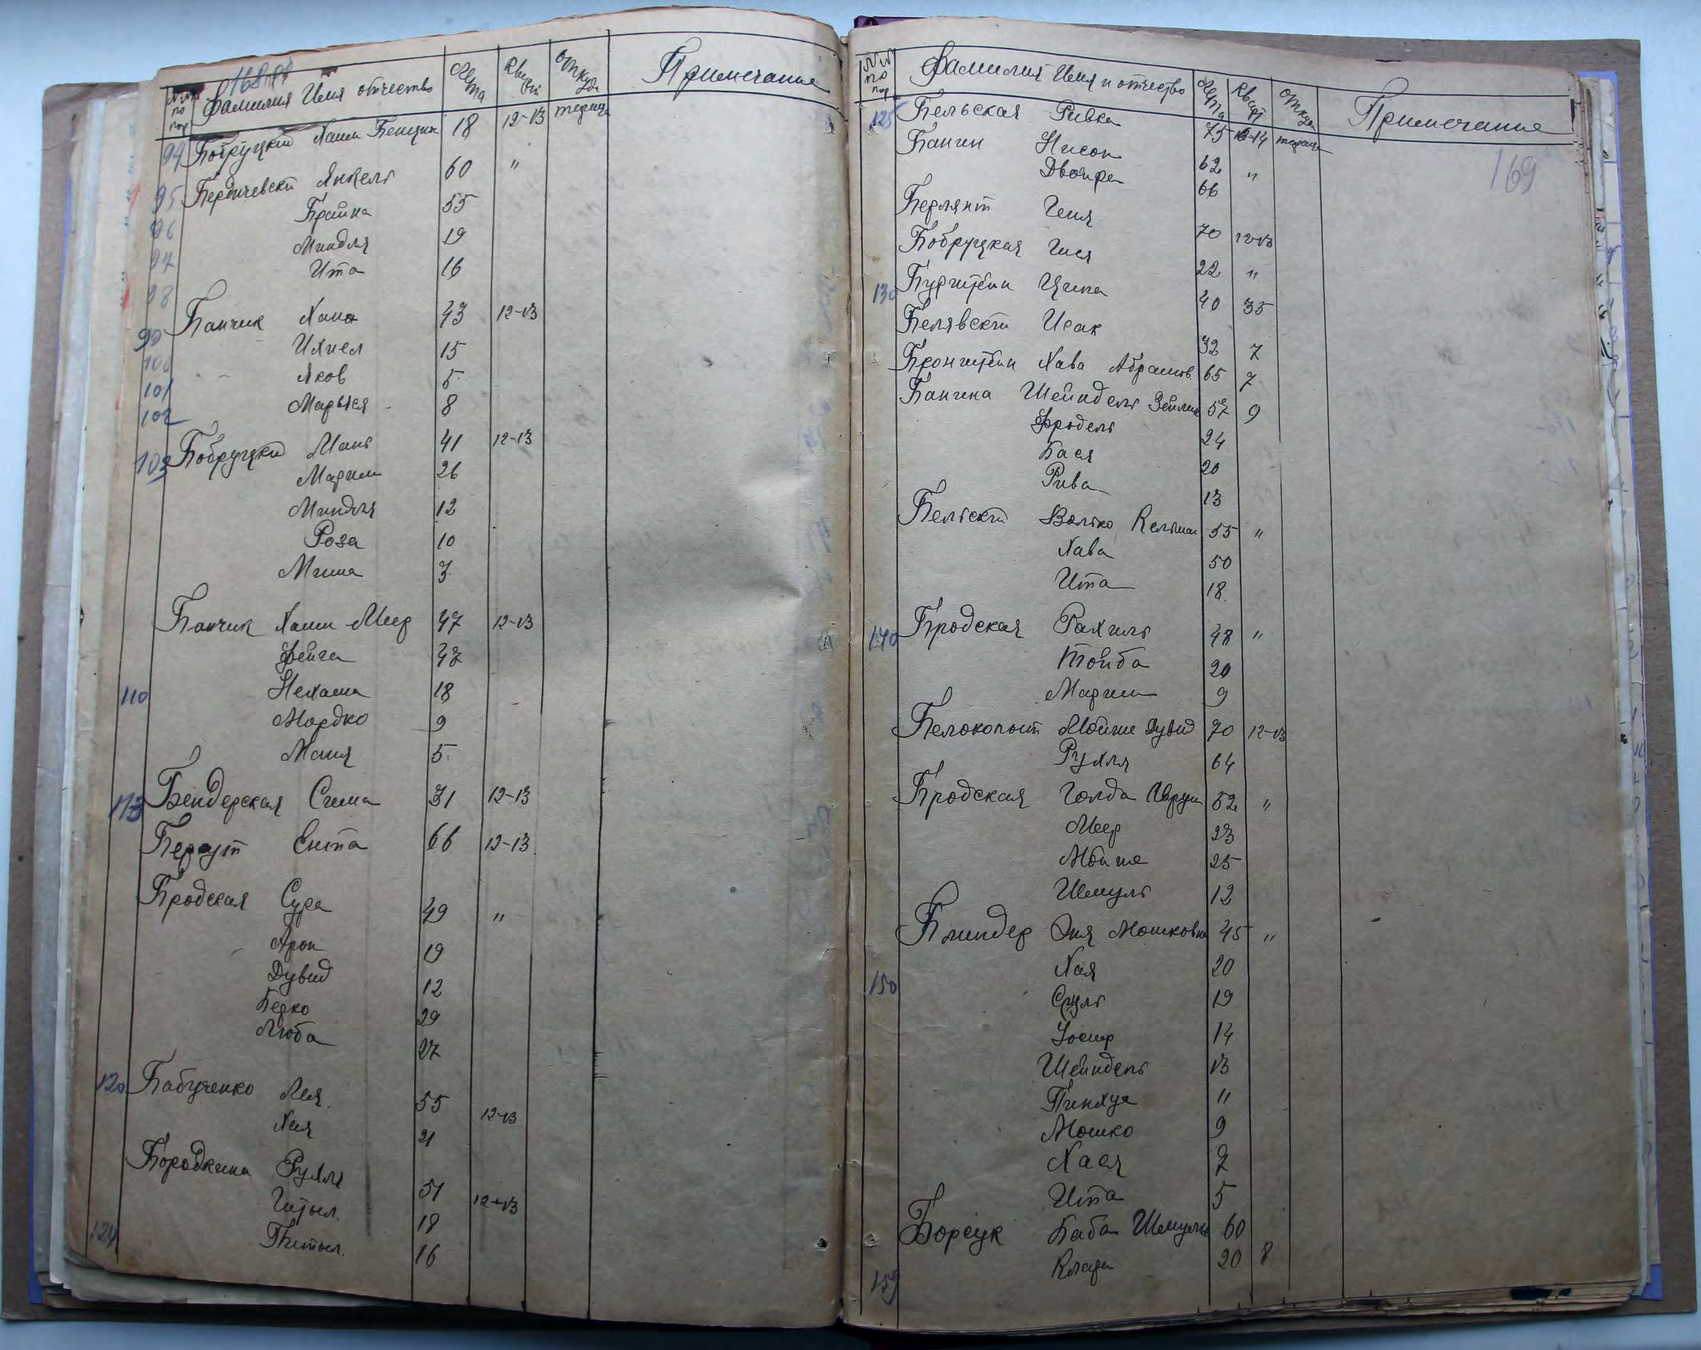 168
№№ по пор Фамилия Имя отчество Лета Кварт откуда Примечание
94 Бобруцкий Хаим Бенцион 18 12-13
95 Бердичевский Янкель 60 "
96 Брайна 55
97 Миндля 19
98 Ита 16
99 Банчик Хана 43 12-13
100 Ихиел 15
101 Яков 5
102 Марьяся 8
103 Бобруцкий Мань 41 12-13
Мариам 26
Миндля 12
Роза 10
Миша 3
Банчик Хаим-Меер 47 12-13
Фейга 47
110 Нехама 18
Мордко 9
Маня 5
113 Бендерская Сима 31 12-13
Ента 66 12-13
Бродская Сура 49 "
Арон 19
Дувид 12
Берко 29
Люба 27
120 Бабученко Лея 55 12-13
Хая 21
Бородкина Рухля 51 12-13
18
124 16
169
№№ по пор Фамилия Имя и отчество Лета Кварт откуда Примечание
125 Бельская Ривка 75 12-14
Бангин Нисон 62 "
Двойра 66
Берлянт Геня 70 12-13
Бобруцкая Гися 22 "
130 Бурштейн Ципа 40 35
Белявский Исак 32 7
Бронштейн Хава Абрамов 65 7
Бангина Шейндель 57 9
Фродель 24
Бася 20
Рива 13
Бельский Волько 55 "
Хава 50
Ита 18
140 Бродская Рахиль 48 "
Тойба 20
Мариам 9
Белокопыт Мойше Дувид 70 12-13
Рухля 64
Бродская Голда Аврум 52 "
Меер 23
Мойше 25
Шемуль 12
Блиндер Эня Мошковна 45 "
150 Хая 20
Сруль 19
Иосиф 14
Шейндель 13
Пинхус 11
Мошко 9
Хася 7
Ита 5
Борсук Баба Шемулев 60
159 Клара 20 8